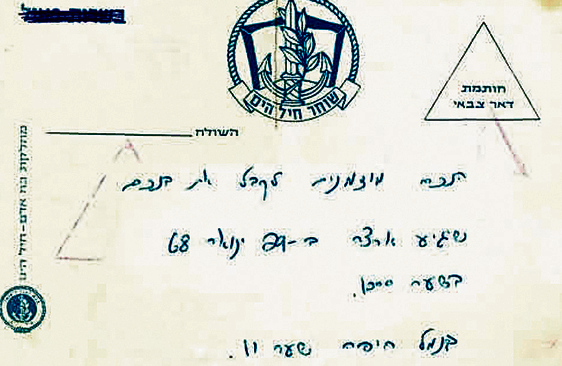 שוחר חיל הים
חותמת
דאר צבאי
השולח
מחלקת כח אדם - חיל הים
הנכם מוזמנים לקבל את בנכם
שיגיע ארצה ב-29 ינואר 68
בשעה
בנמל חיפה שער 11.